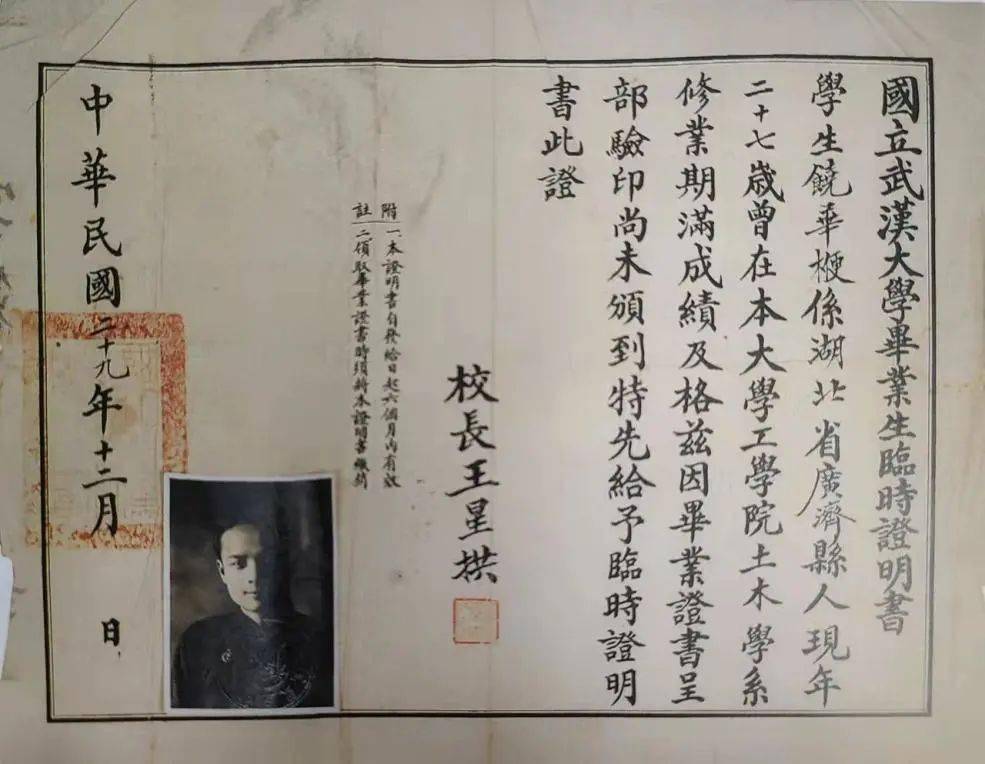 國立武漢大學畢業生臨時證明書
學生饒華楩係湖北省廣濟縣人現年
二十七歲曾在本大學工學院土木學系
修業期滿成績及格茲因畢業證書呈
部驗印尚未頒到特先給予臨時證明
書此證
校長王星拱
附註
一、本證明書自發給日起六個月內有效
二、領取畢業證書時須將本證明書繳銷
中華民國二十九年十二月 日